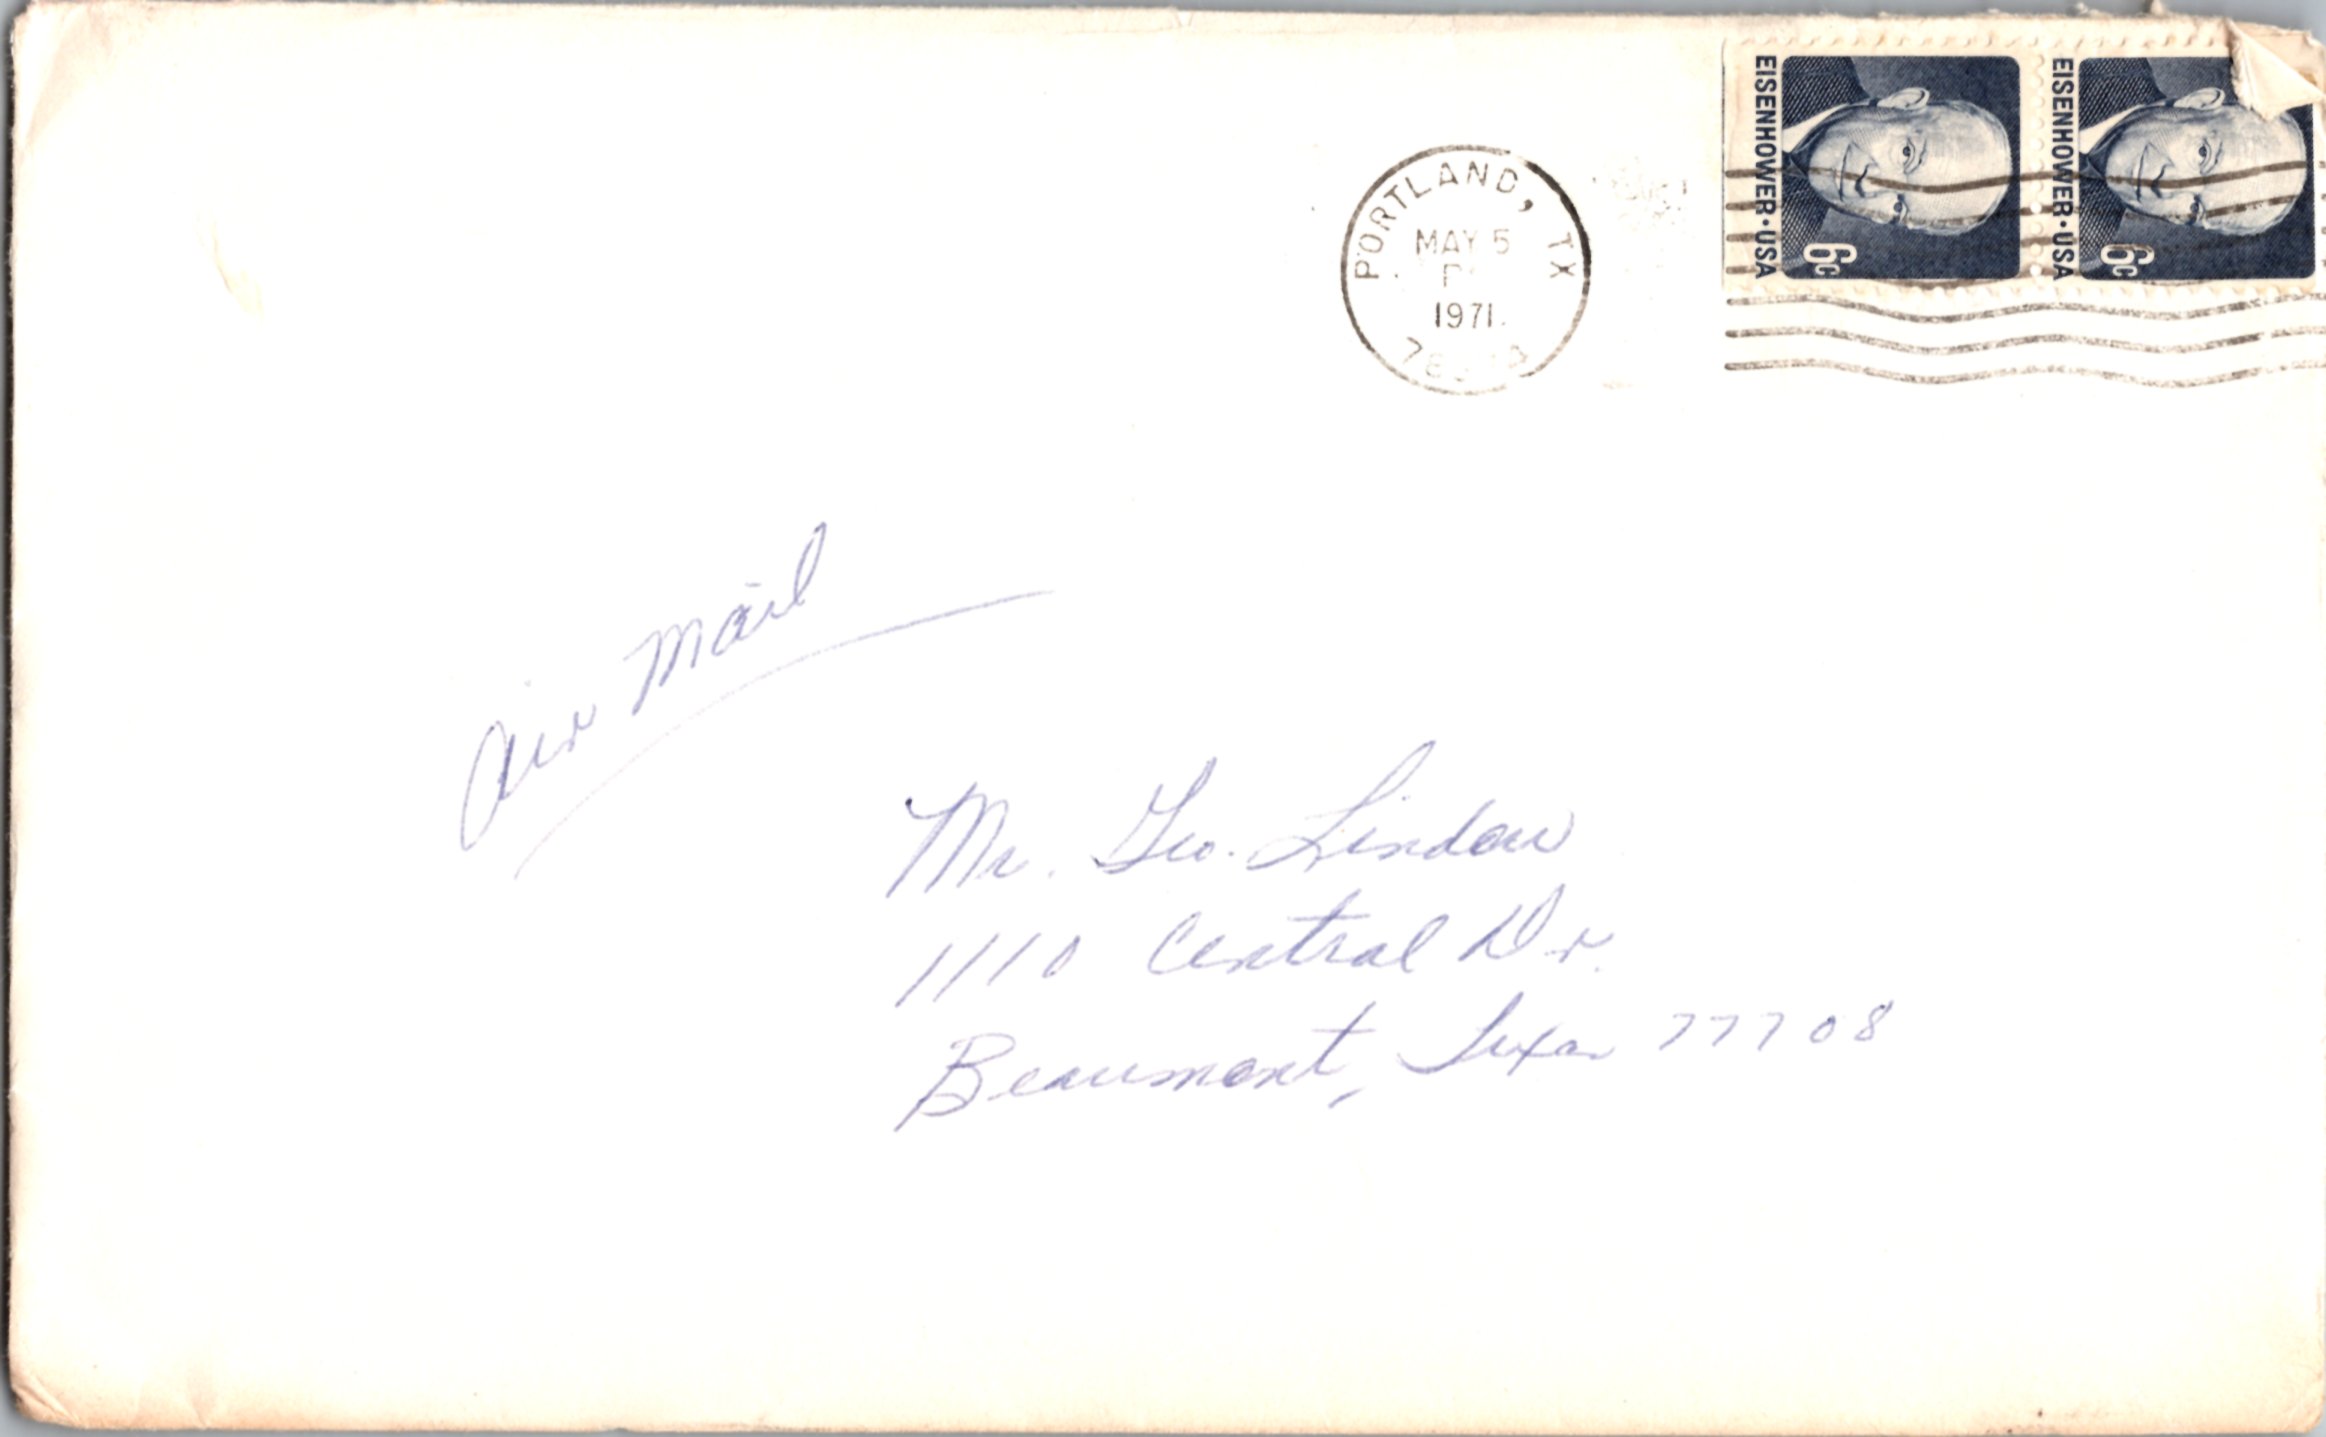 EISENHOWER · USA
6c
EISENHOWER · USA
6c
PORTLAND, TX
MAY 5
1971
Air Mail
Mr. Geo. Lindow
1110 Central Dr.
Beaumont, Texas 77708